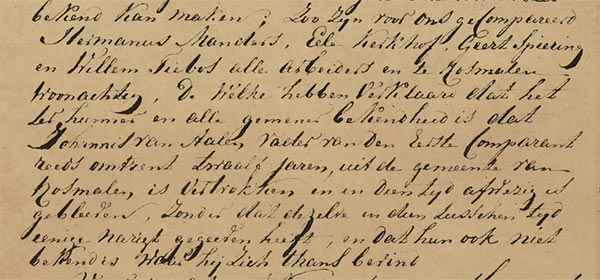 bekend kan maken; Zoo zyn voor ons gecompareerd
Hermanus Manders, Eele Kerkhof, Geert Spiering
en Willem Tiebos alle arbeiders en te Rosmalen
woonachtig, De welke hebben verklaard dat het
ter hunner en alle gemener bekendheid is dat
Johannis van Aalen Vader van Den Eerste Comparant
reeds omtrent twaalf jaren, uit de gemeente van
Rosmalen is vertrokken en in dien tyd afwezig is
gebleven, zonder dat dezelve in dien tusschen tyd
eenige narigt gegeeven heeft, en dat hun ook niet
bekend is waar hy zich thans bevint